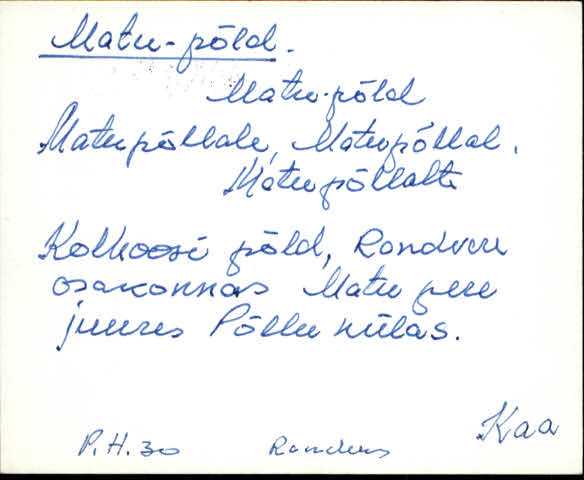 Matu-põld.
Matu-põld
Matupõllale, Matupõllal,
Matupõllalt
Kolhoosi põld, Randvere
osakonnas Matu pere
juures Põllu külas.
Kaa
P.H.30